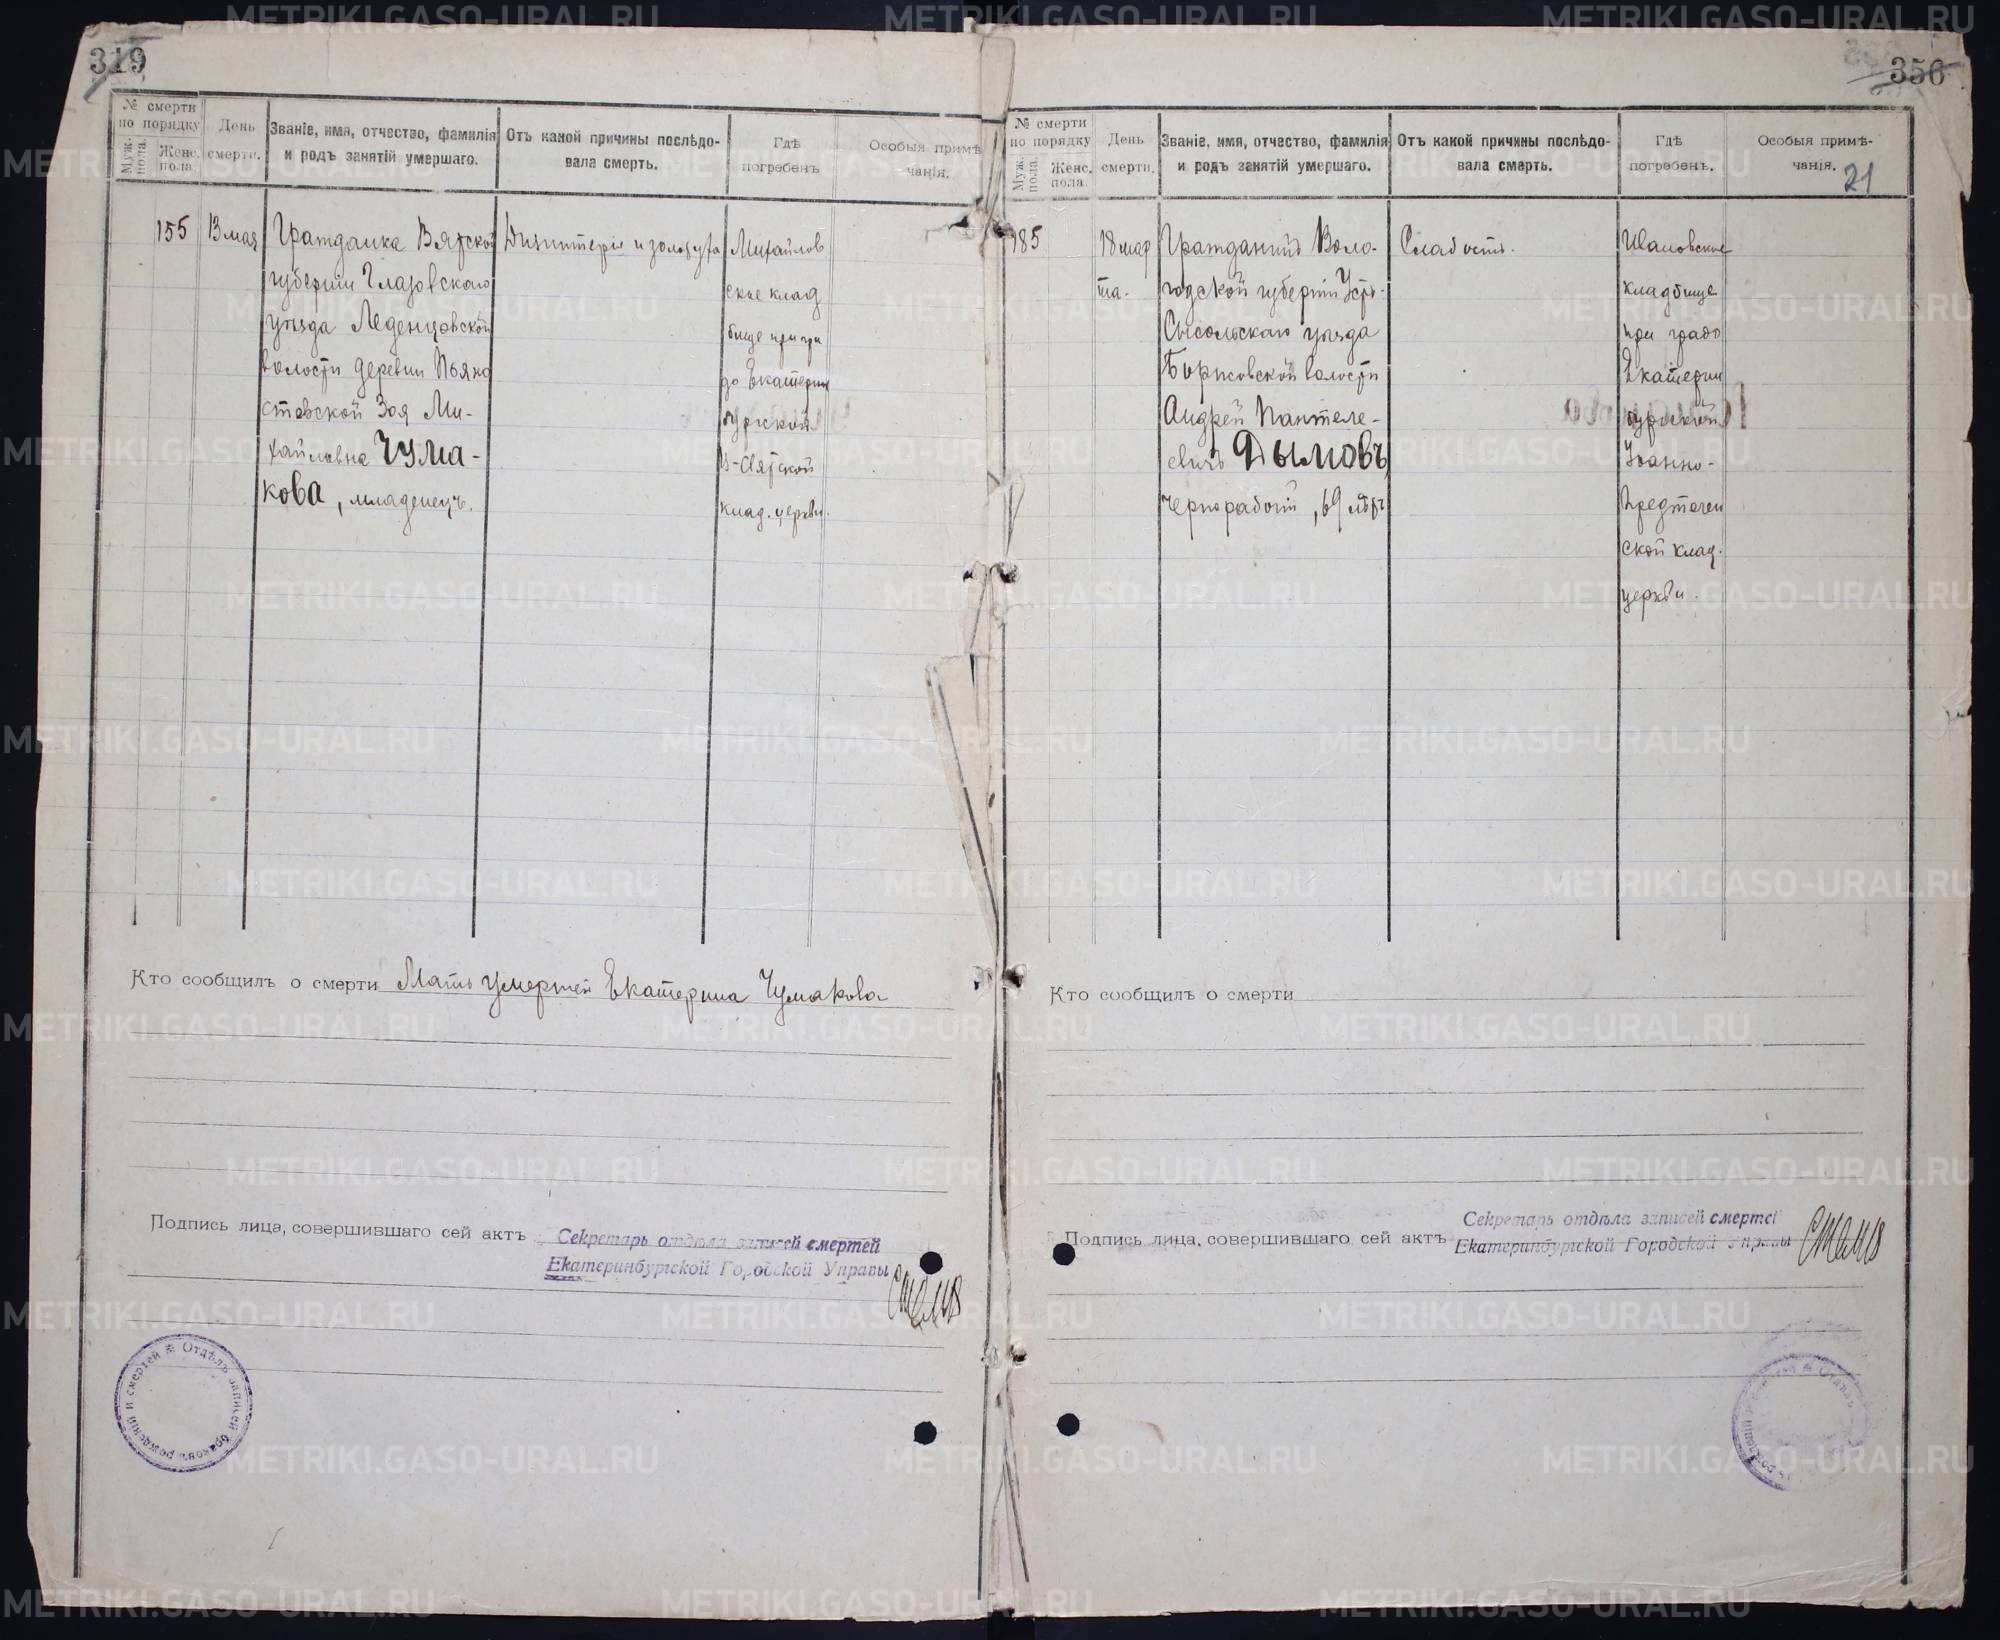 319
№ смерти по порядку
Муж. пола.
Женс. пола.
День смерти.
Званіе, имя, отчество, фамилія и родъ занятій умершаго.
Отъ какой причины послѣдовала смерть.
Гдѣ погребенъ
Особыя примѣчанія.
155
13 мая
Гражданка Вятской
губерніи Глазовскаго
уѣзда Леденцовской
волости деревни
Зоя Ми-
хайловна Чума-
кова, младенецъ.
Дизинтерія и золотуха
Михайлов
ское клад
бище при гра
до Екатерин
бургской
В-Святской
клад. церкви.
Кто сообщилъ о смерти Мать умершей Екатерина Чумакова
Подпись лица, совершившаго сей актъ
Секретарь отдѣла записей смертей
Екатеринбургской Городской Управы
Отдѣлъ записей браковъ рожденій и смертей
356
№ смерти по порядку
Муж. пола.
Женс. пола.
День смерти.
Званіе, имя, отчество, фамилія и родъ занятій умершаго.
Отъ какой причины послѣдовала смерть.
Гдѣ погребенъ.
Особыя примѣчанія.
21
185
18 мар
та.
Гражданинъ Воло-
годской губерніи Усть-
Сысольскаго уѣзда
Борисовской волости
Андрей Пантеле-
евичъ Дымовъ,
чернорабочій, 69 лѣтъ
Слабость.
Ивановское
кладбище
при градо
Екатерин
бургской
Іоанно-
Предтечен
ской клад.
церкви.
Кто сообщилъ о смерти
Подпись лица, совершившаго сей актъ
Секретарь отдѣла записей смертей
Екатеринбургской Городской Управы
METRIKI.GASO-URAL.RU